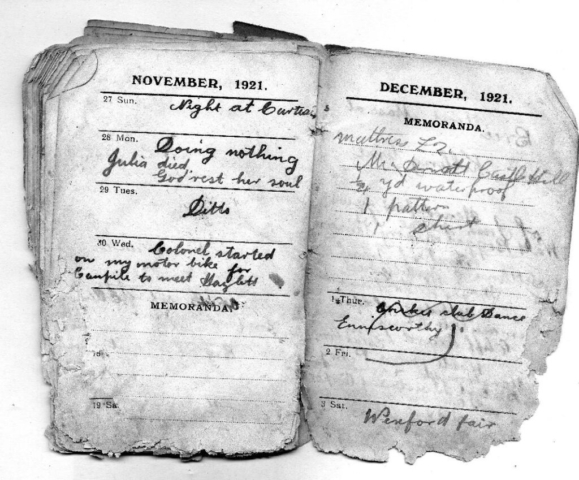 NOVEMBER, 1921.
27 Sun.
Night at Curtis
28 Mon.
Doing nothing
Julia died
God rest her soul
29 Tues.
Ditto
30 Wed.
Colonel started
on my motor bike for
to meet
MEMORANDA.
DECEMBER, 1921.
MEMORANDA.
mattress
Castle Hill
2 yd waterproof
1
1 shirt
1 Thur.
club Dance
Enniscorthy
2 Fri.
3 Sat.
Wexford fair